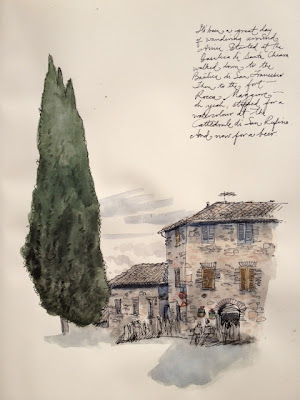 It's been a great day
of wandering around
Assisi. Started at the
Basilica di Santa Chiara
walked down to the
Basilica di San Francesco
Then to the fort
Rocca Maggiore
oh yeah, stopped for a
watercolour at the
Cattedrale di San Rufino
And now for a beer